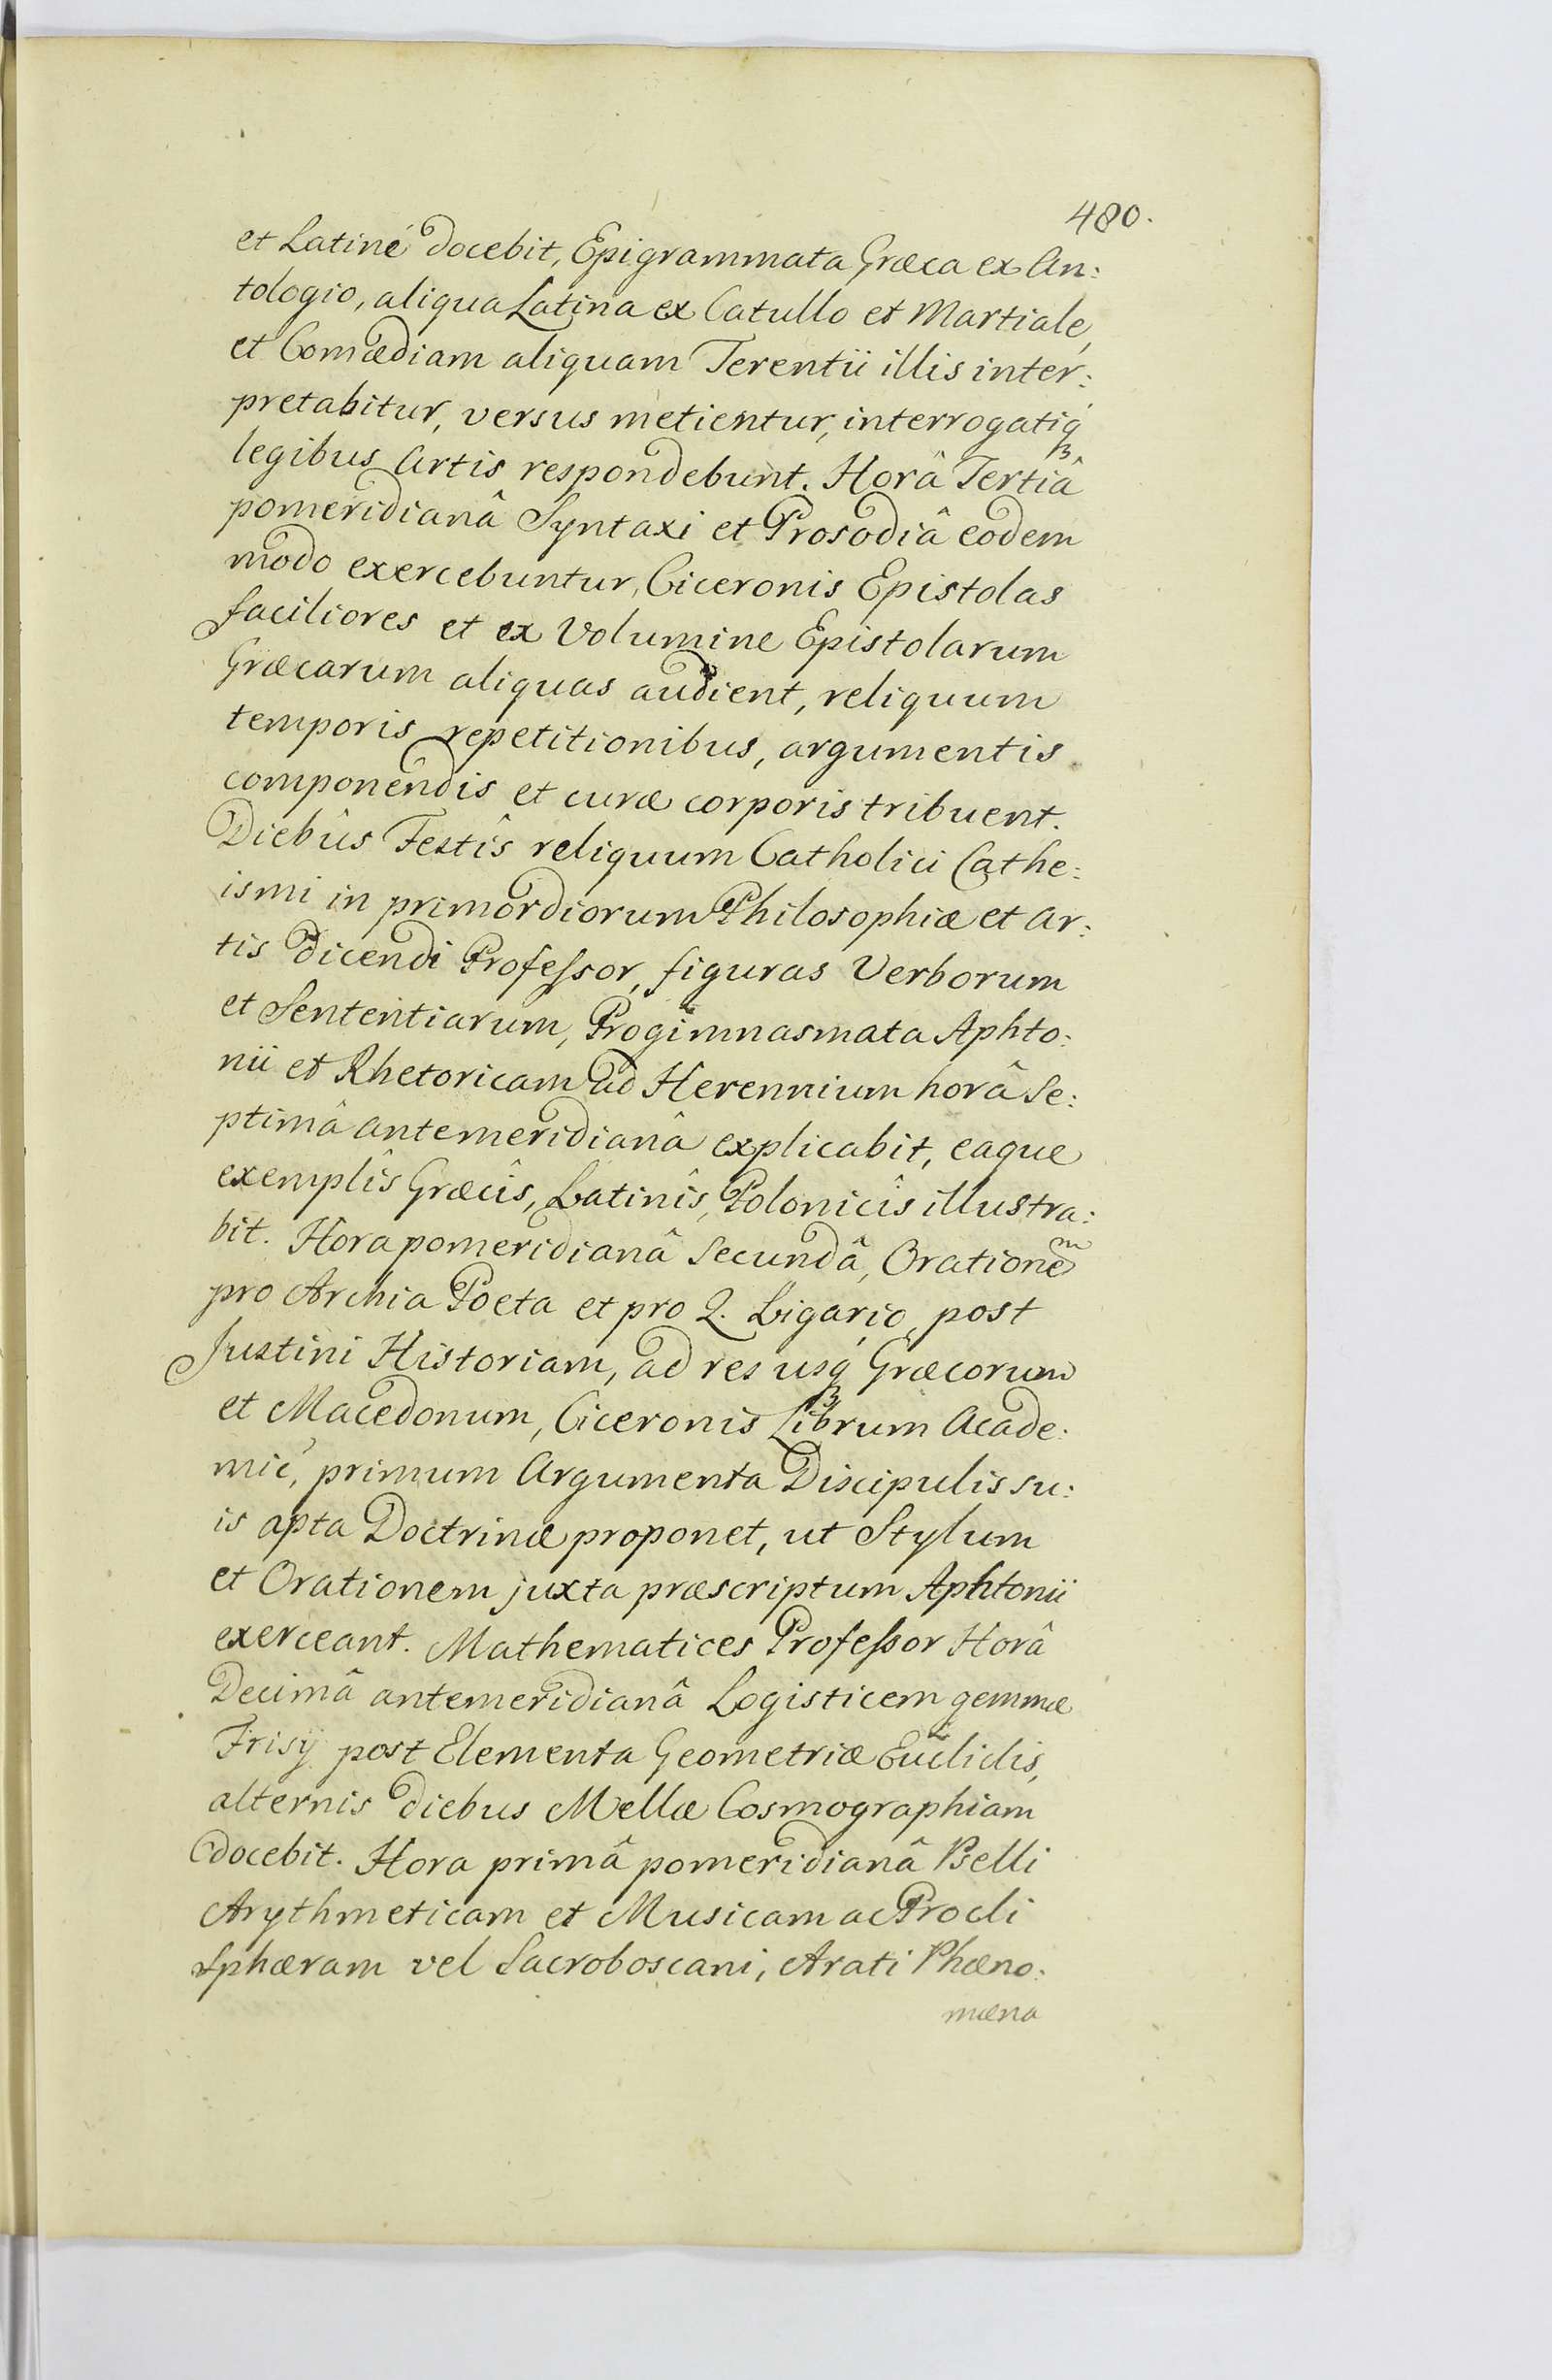 480.
et Latiné docebit, Epigrammata Græca ex An:
tologio, aliqua Latina ex Catullo et Martiale,
et Comædiam aliquam Terentii illis inter:
pretabitur, versus metientur, interrogatiqꝫ
legibus Artis respondebunt. Horâ Tertiâ
pomeridianâ Syntaxi et Prosodiâ eodem
modo exercebuntur, Ciceronis Epistolas
faciliores et ex Volumine Epistolarum
Græcarum aliquas audient, reliquum
temporis repetitionibus, argumentis
componendis et curæ corporis tribuent.
Diebûs Festîs reliquum Catholici Cathe:
ismi in primordiorum Philosophiæ et Ar:
tis dicendi Profeſsor, figuras Verborum
et Sententiarum, Progimnasmata Aphto:
nii et Rhetoricam ad Herennium horâ Se:
ptimâ antemeridianâ explicabit, eaque
exemplîs Græcîs, Latinîs, Polonicîs illustra:
bit. Hora pomeridianâ Secundâ, Orationem
pro Archia Poeta et pro Q. Ligario, post
Justini Historiam, ad res usqꝫ Græcorum
et Macedonum, Ciceronis Librum Acade:
mic, primum Argumenta Discipulis su:
is apta Doctrinæ proponet, ut Stylum
et Orationem juxta præscriptum Aphtonii
exerceant. Mathematices Profeſsor Horâ
Decimâ antemeridianâ Logisticem gemmæ
Frisÿ post Elementa Geometriæ Euclidis,
alternis diebus Mellæ Cosmographiam
docebit. Hora primâ pomeridianâ Pselli
Arythmeticam et Musicam ac Procli
Sphæram vel Sacroboscani, Arati Phæno:
mæna